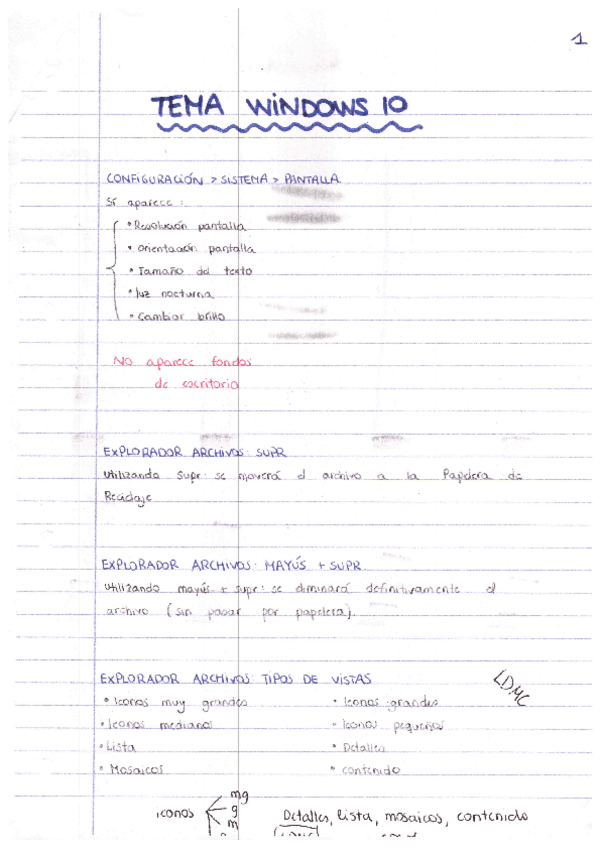 1
TEMA WINDOWS 10
CONFIGURACIÓN > SISTEMA > PANTALLA
Sí aparece :
• Resolución pantalla
• Orientación pantalla
• Tamaño del texto
• luz nocturna
• Cambiar brillo
No aparece fondos
de escritorio
EXPLORADOR ARCHIVOS: SUPR
Utilizando Supr: se moverá el archivo a la Papelera de
Reciclaje
EXPLORADOR ARCHIVOS: MAYÚS + SUPR.
Utilizando mayús + supr: se eliminará definitivamente el
archivo (sin pasar por papelera).
EXPLORADOR ARCHIVOS: TIPOS DE VISTAS
LDMC
• Iconos muy grandes • Iconos grandes
• Iconos medianos • Iconos pequeños
• Lista • Detalles
• Mosaicos • contenido
mg
iconos g Detalles, lista, mosaicos, contenido
m